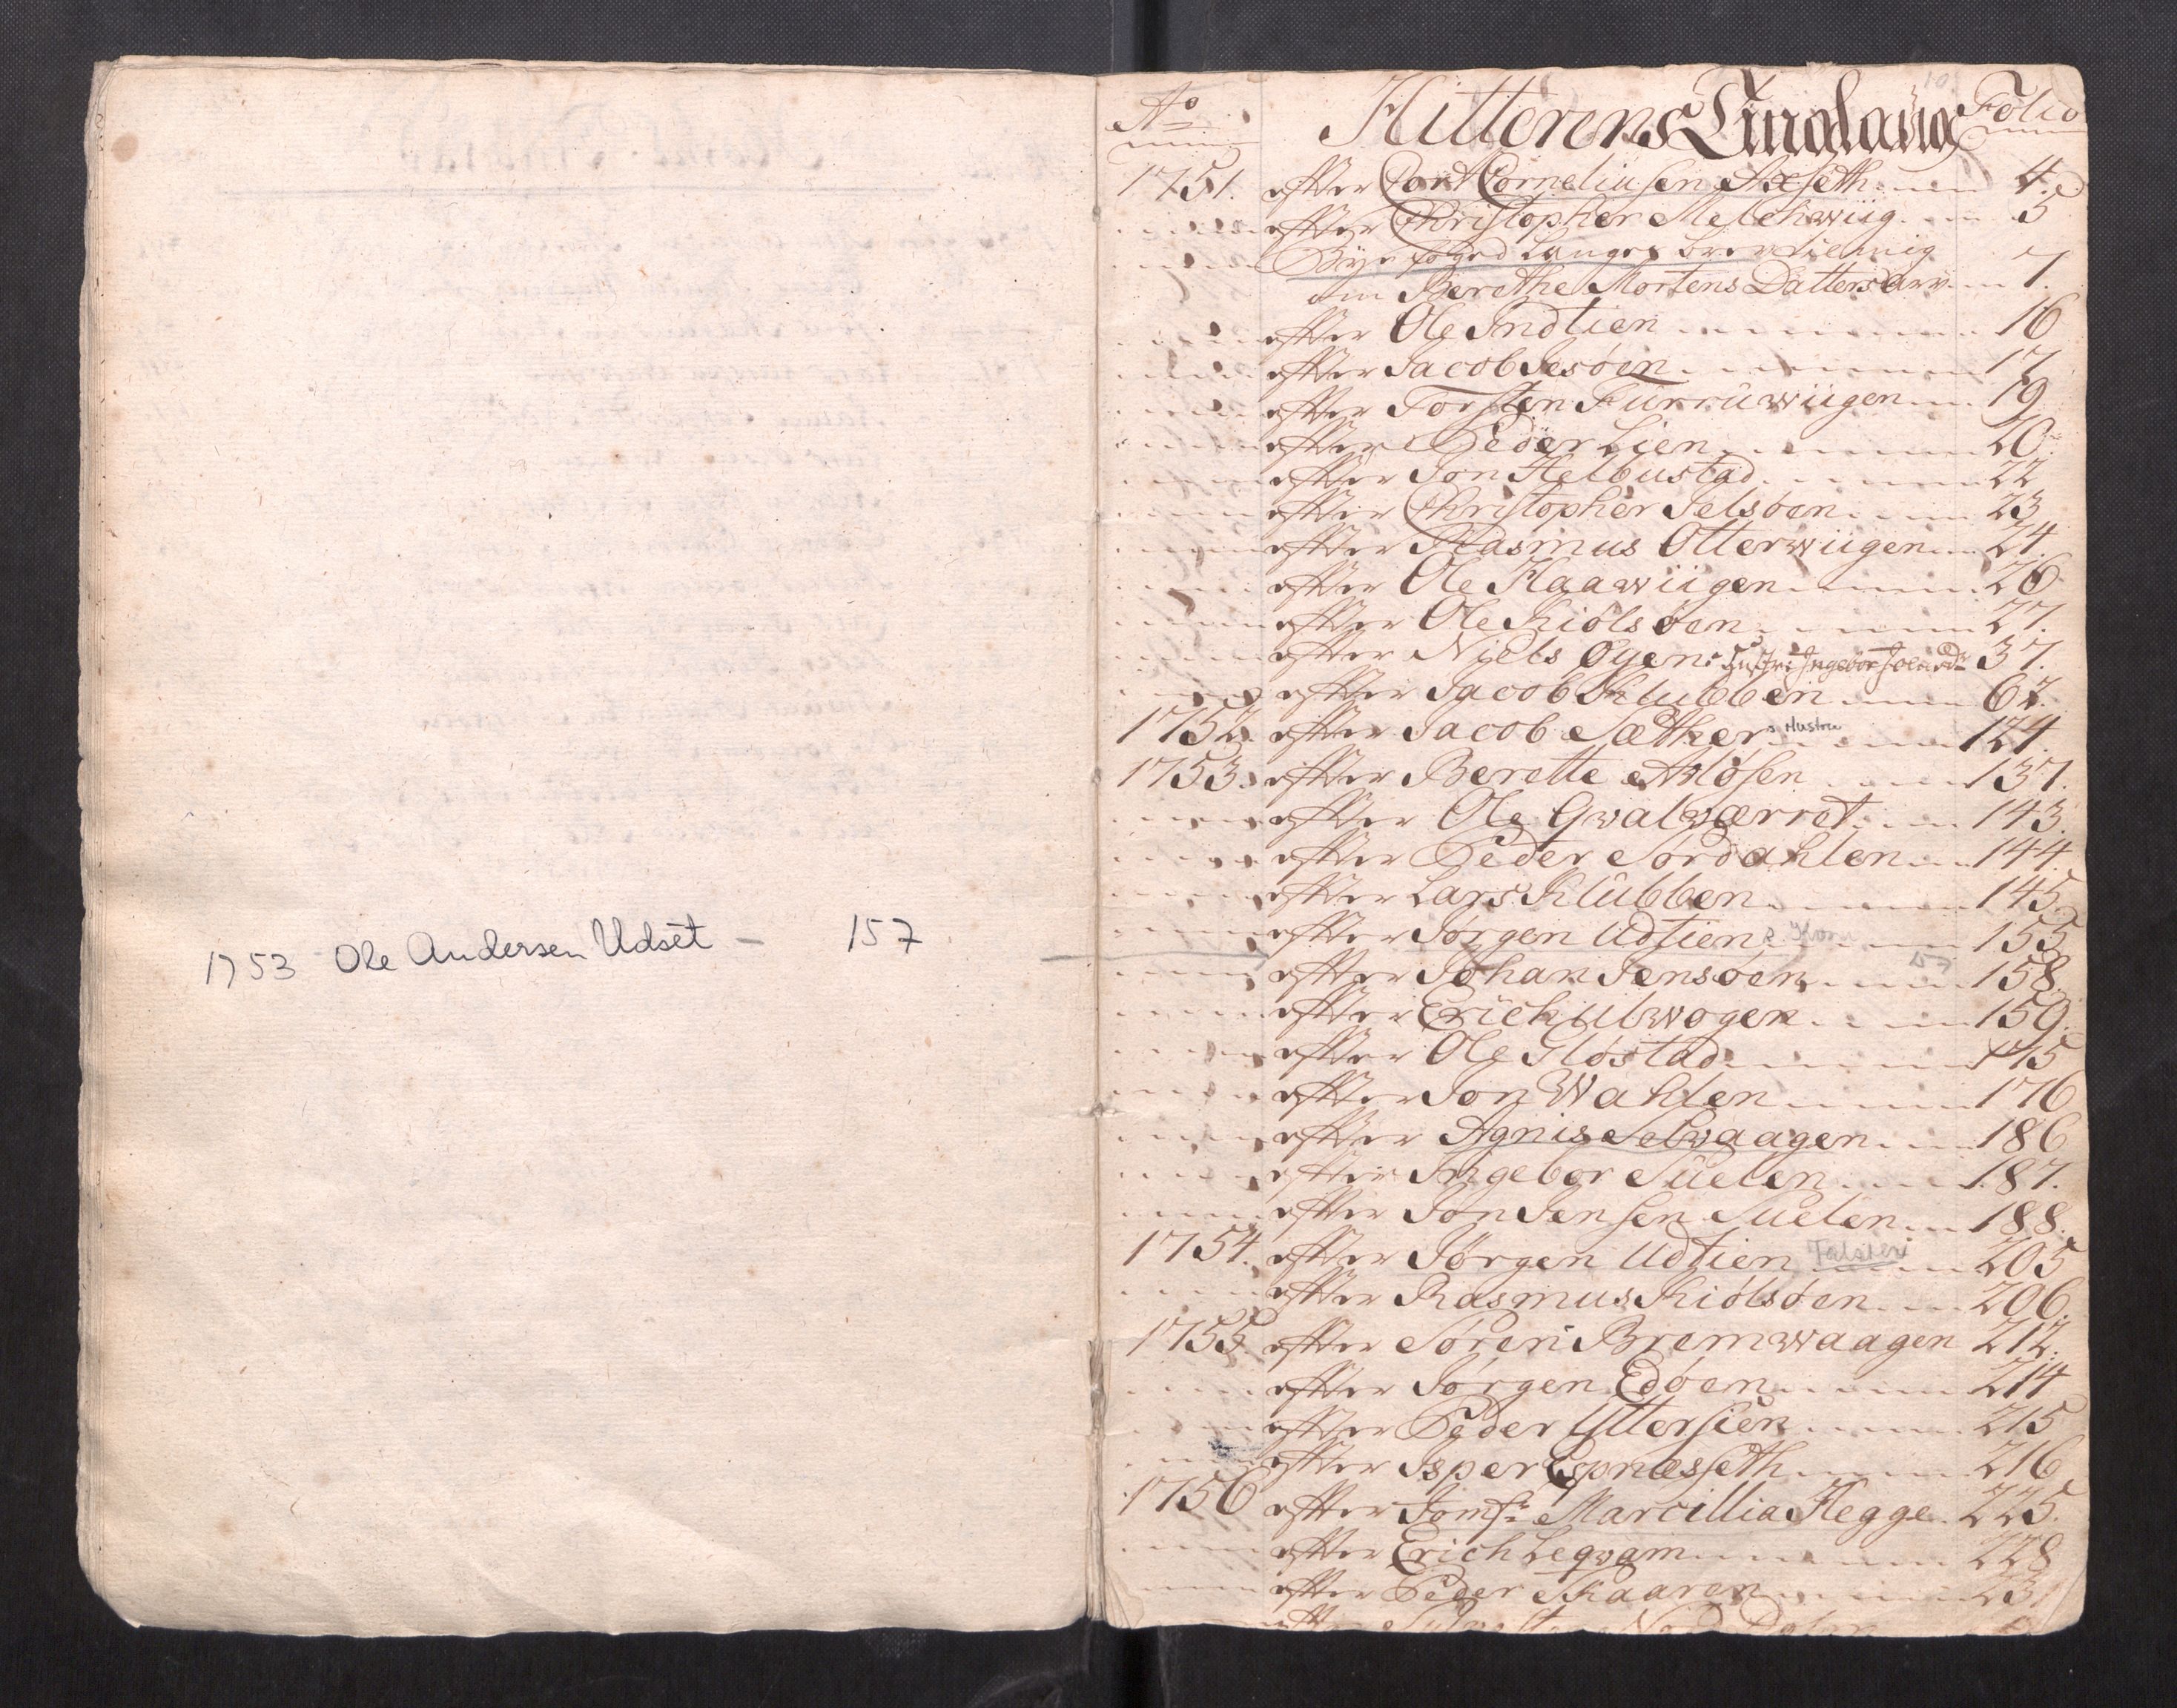 1753 Ole Andersen Udset - 157
10
Ao Hitterens Tinglaug Folio
1751. efter Cort Corneliusen Axseth 4.
efter Christopher Melchwiig 5
Bye foged Langes brev til mig
om Berethe Mortens Datters arv 7.
efter Ole Indtien 16
efter Jacob Jesøen 17
efter Torsten Furruwiigen 19
efter Peder Lien 20.
efter Jon Helbustad 22
efter Christopher Jelsøen 23
efter Rasmus Otterwiigen 24.
efter Ole Haawiigen 26
efter Ole Kiølsøen 27.
efter Niels Øyens Hustr: Ingebor 37.
efter Jacob Klubben 67.
1752. efter Jacob Sæther s Hustru 124.
1753. efter Berette 137.
efter Ole Qvalværret 143.
efter Peder Sørdahlen 144.
efter Lars Klubben 145.
efter Jørgen Udtien 155
157
efter Johan Jensøen 158.
efter Erich Ulvvogen 159.
efter Ole Fløstad 175
efter Jon Wahlen 176
efter Agnis Selvaagen 186
efter Ingebor Suelen 187.
efter Jon Jensen Suelen 188.
1754. efter Jørgen Udtien 205
efter Rasmus Kiølsøen 206.
1755 efter Søren Bremwaagen 212.
efter Jørgen Edøen 214
efter Peder Yttersien 215
efter Isper Espnesseth 216
1756 efter Jomf: Marcillia Hegge 225.
efter Erich Leqvam 228
efter Peder Skaaren 231